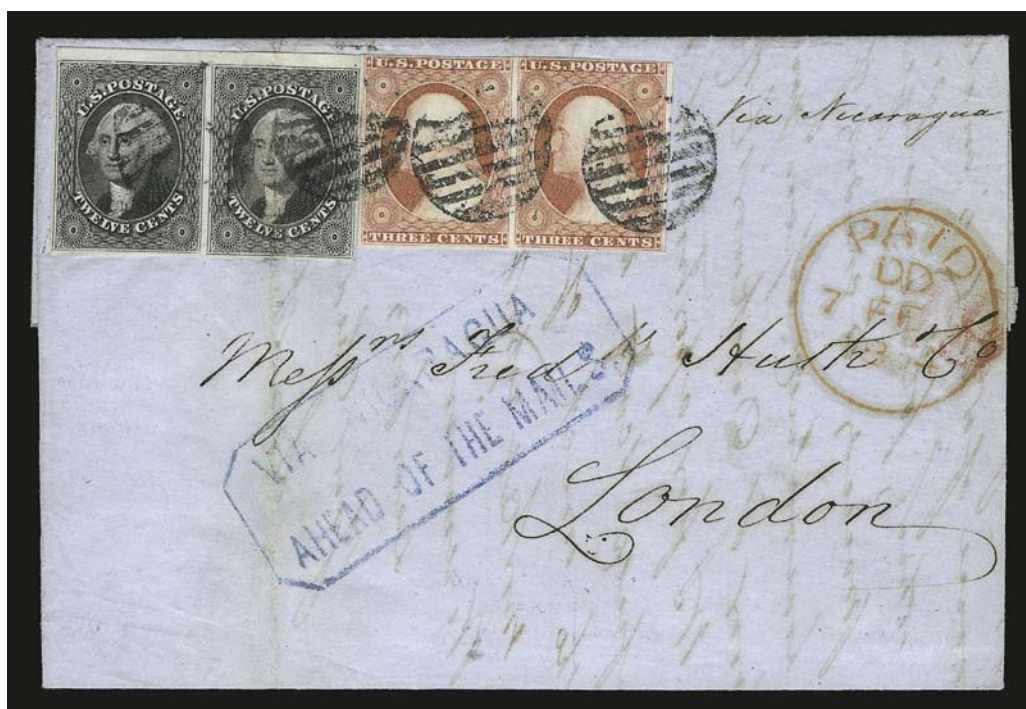 U.S.POSTAGE
TWELVE CENTS
U.S.POSTAGE
TWELVE CENTS
U.S.POSTAGE
THREE CENTS
U.S.POSTAGE
THREE CENTS
Via Nicaragua
PAID
DD
7 FE
VIA NICARAGUA
AHEAD OF THE MAILS.
Messrs Fredk Huth & Co
London